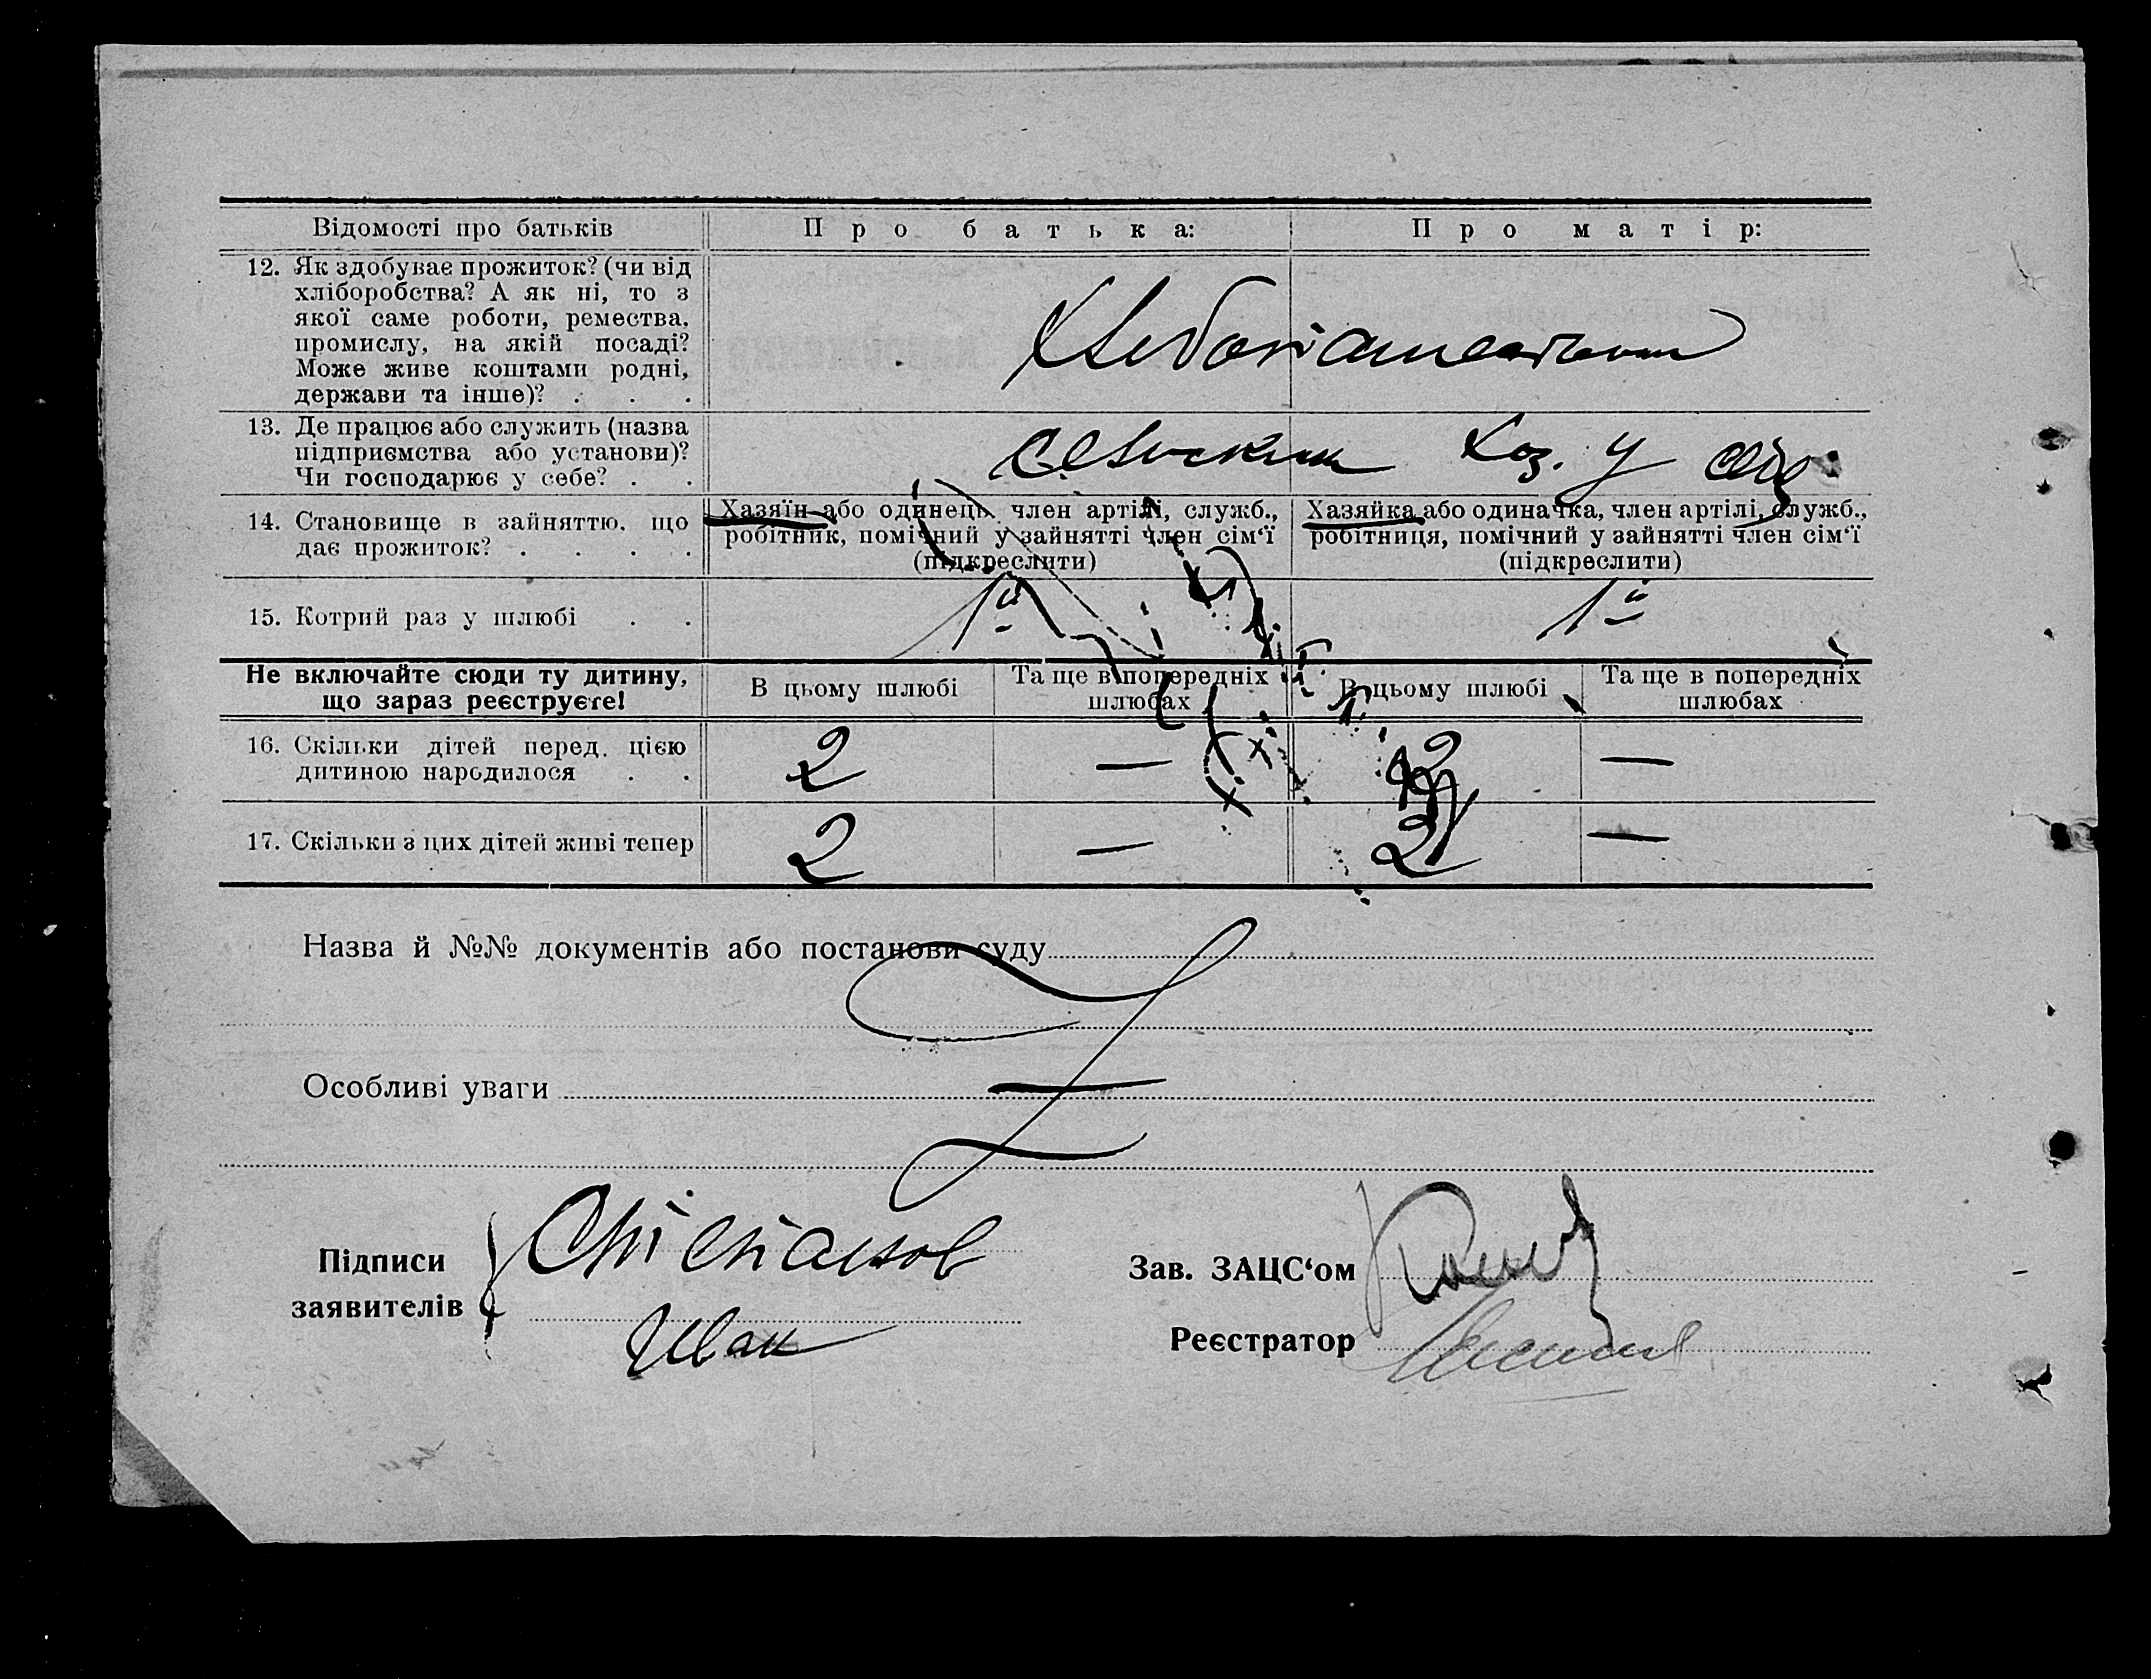 Відомості про батьків
Про батька:
Про матір:
12. Як здобуває прожиток? (чи від
хліборобства? А як ні, то з
якої саме роботи, ремества,
промислу, на якій посаді?
Може живе коштами родні,
держави та інше)? . . .
13. Де працює або служить (назва
підприємства або установи)?
Чи господарює у себе? . .
хоз. у себе
14. Становище в зайняттю, що
дає прожиток? . . . .
Хазяїн або одинець, член артілі, служб.,
робітник, помічний у зайнятті член сім'ї
(підкреслити)
Хазяйка або одиначка, член артілі, служб.,
робітниця, помічний у зайнятті член сім'ї
(підкреслити)
15. Котрий раз у шлюбі . .
1й
1й
Не включайте сюди ту дитину,
що зараз реєструєте!
В цьому шлюбі
Та ще в попередніх
шлюбах
В цьому шлюбі
Та ще в попередніх
шлюбах
16. Скільки дітей перед. цією
дитиною народилося . .
2
—
2
—
17. Скільки з цих дітей живі тепер
2
—
2
—
Назва й №№ документів або постанови суду
Особливі уваги
Підписи
заявителів
Иван
Зав. ЗАЦС'ом
Реєстратор